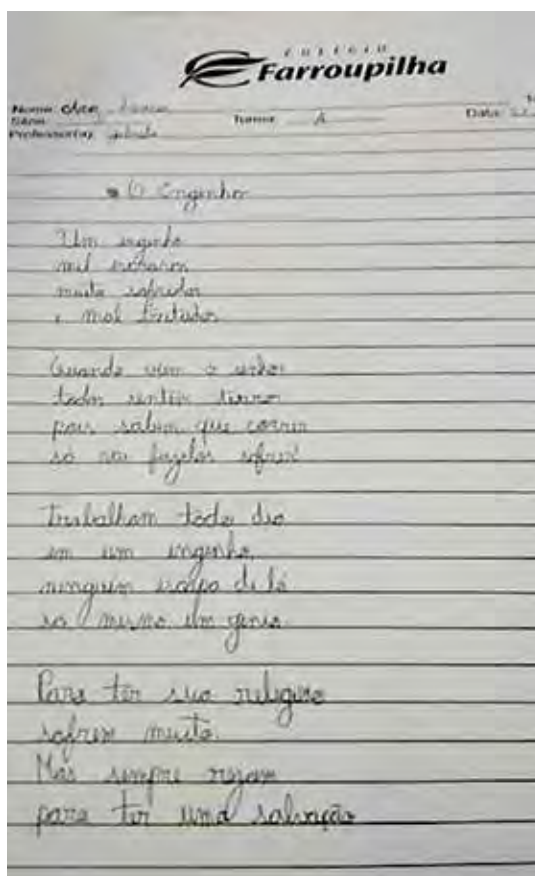 COLÉGIO
Farroupilha
Nome:
Série: Turma: A Data:
Professor(a):
O Enginho
Um enginho
mil escravos
muito sofridos
e mal tratados
Quando vem o senhor
todos sentem terror
pois sabem que correr
só vai fazelos sofrer
Trabalham todo dia
em um enginho,
ninguem escapa de lá
só mesmo um genio
Para ter sua religião
sofrem muito.
Mas sempre rezam
para ter uma salvação